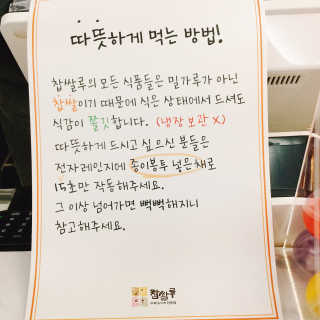 따뜻하게 먹는 방법!
찹쌀루의 모든 식품들은 밀가루가 아닌
찹쌀이기 때문에 식은 상태에서 드셔도
식감이 쫄깃합니다. (냉장보관 X)
따뜻하게 드시고 싶으신 분들은
전자레인지에 종이봉투 넣은채로
15초만 작동해주세요.
그 이상 넘어가면 빡빡해지니
참고해주세요.
찹쌀루